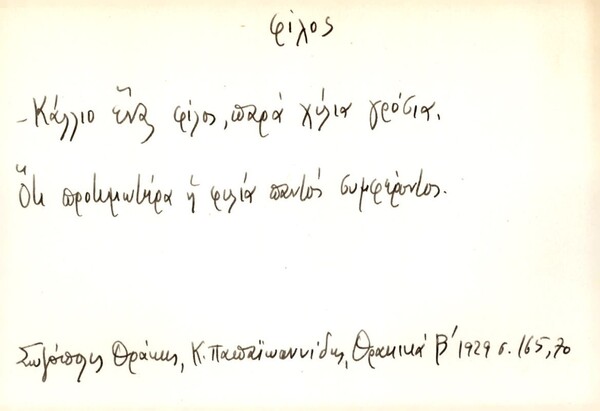 φίλος
- Κάλλιο ἕνας φίλος, παρά χίλια γρόσια.
Ὅτι προτιμωτέρα ἡ φιλία παντός συμφέροντος.
Σωζόπολις Θράκης, Κ. Παπαϊωαννίδης, Θρακικά Β΄ 1929 σ. 165, 70